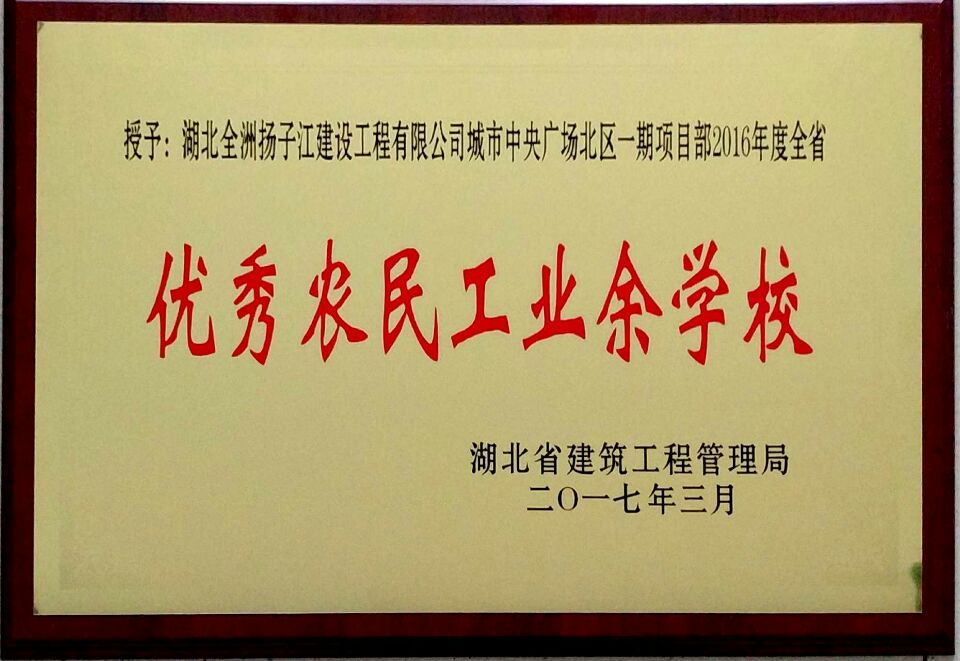 授予：湖北全洲扬子江建设工程有限公司城市中央广场北区一期项目部2016年度全省
优秀农民工业余学校
湖北省建筑工程管理局
二〇一七年三月